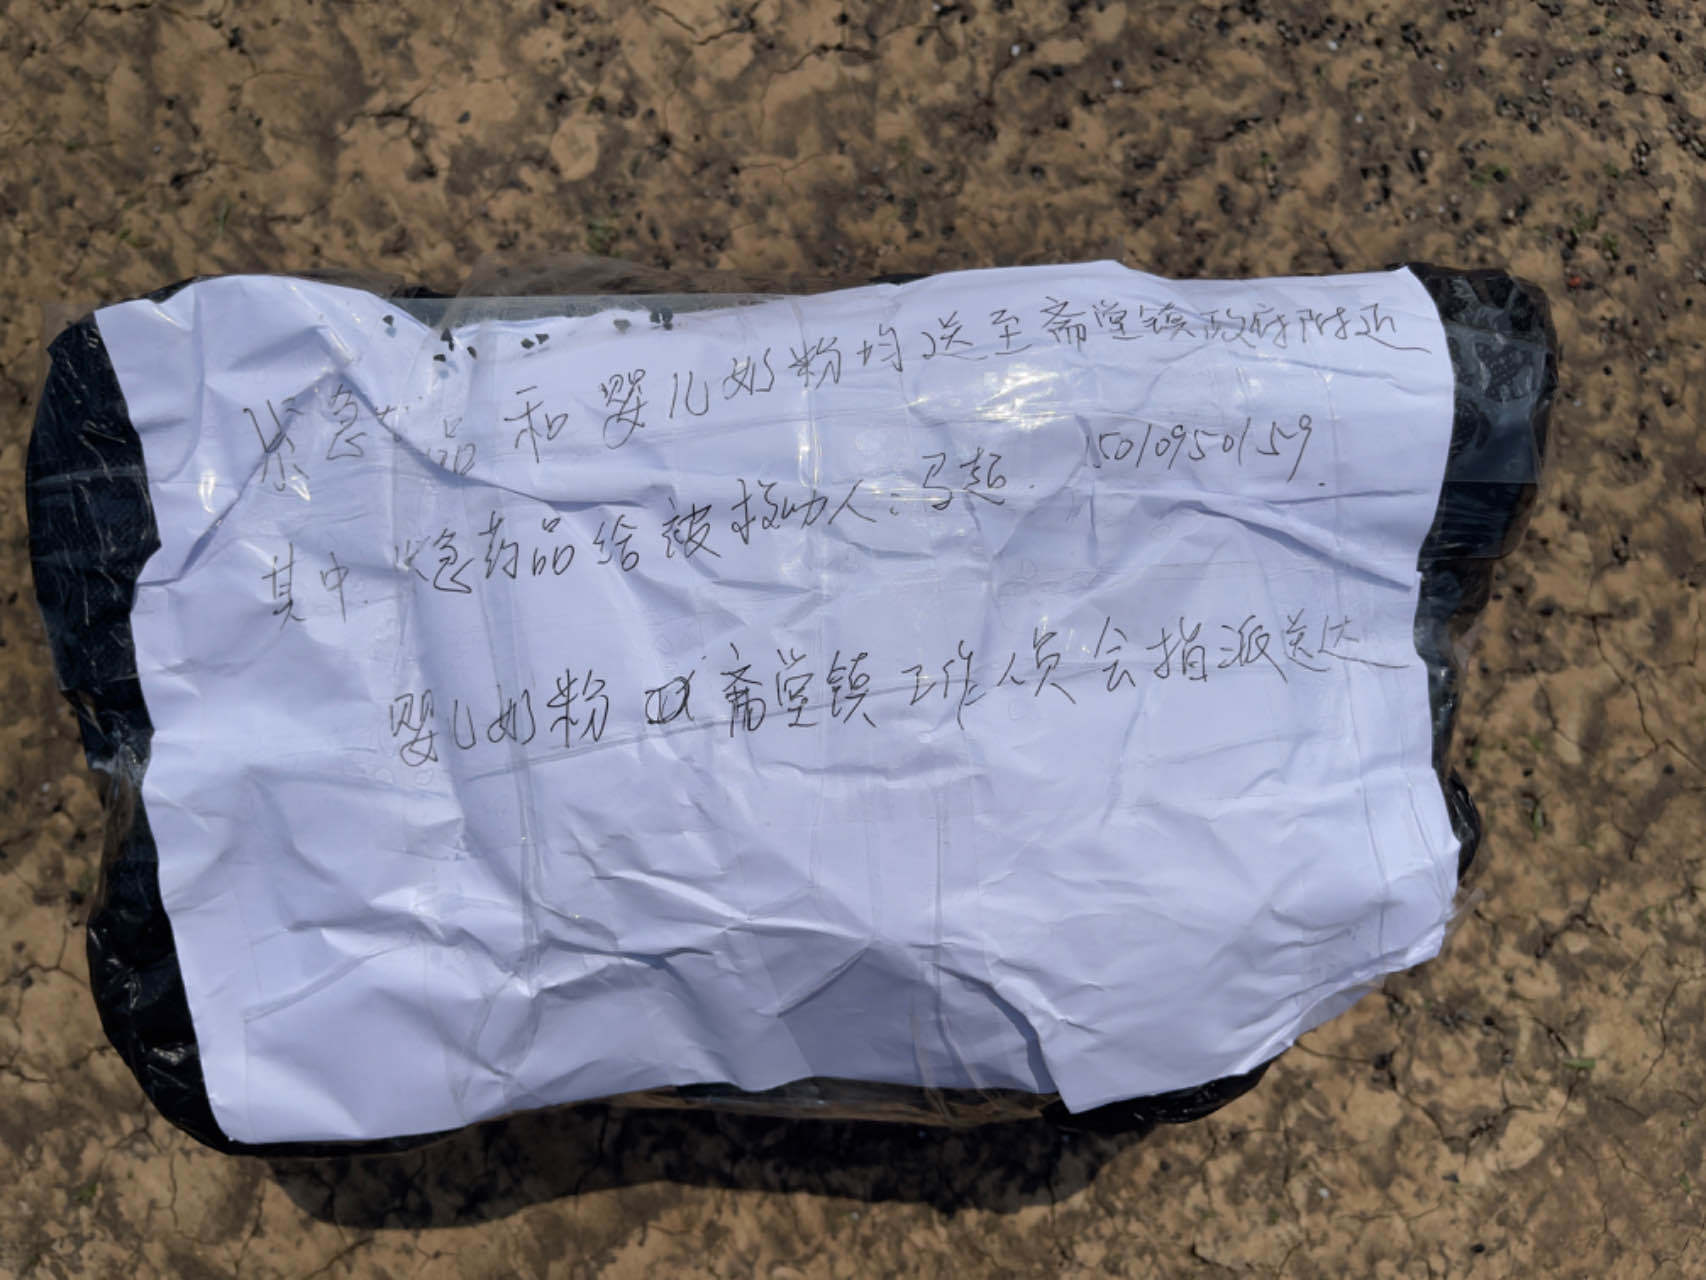 紧急药品和婴儿奶粉均送至斋堂镇政府附近
其中紧急药品给被救助人:马超. 15010950159.
婴儿奶粉 斋堂镇工作人员会指派送达